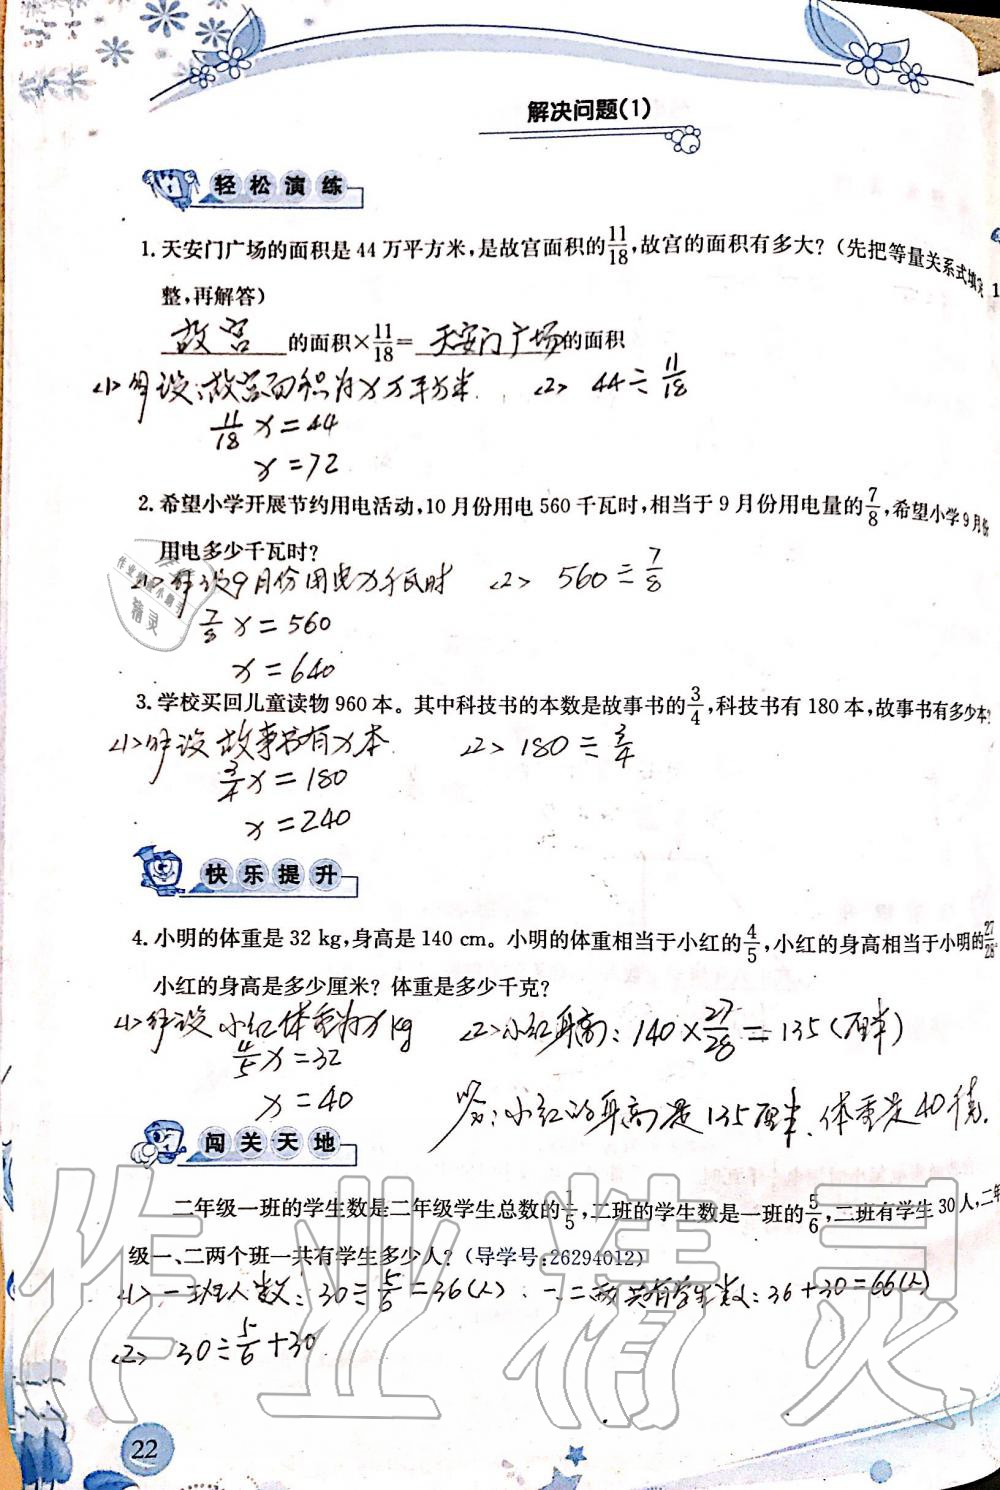 解决问题(1)
轻松演练
1. 天安门广场的面积是 44 万平方米,是故宫面积的11/18,故宫的面积有多大?(先把等量关系式填完
整,再解答)
故宫的面积×11/18=天安门广场的面积
<1> 解设:故宫面积为x万平方米. <2> 44÷11/18
11/18 x=44
x=72
2. 希望小学开展节约用电活动,10 月份用电 560 千瓦时,相当于 9 月份用电量的7/8,希望小学9月份
用电多少千瓦时?
<1> 解设9月份用电x千瓦时 <2> 560÷7/8
7/8 x=560
x=640
3. 学校买回儿童读物 960 本。其中科技书的本数是故事书的3/4,科技书有 180 本,故事书有多少本?
<1> 解设故事书有x本 <2> 180÷3/4
3/4 x=180
x=240
快乐提升
4. 小明的体重是 32 kg,身高是 140 cm。小明的体重相当于小红的4/5,小红的身高相当于小明的27/28。
小红的身高是多少厘米?体重是多少千克?
<1> 解设小红体重为x kg <2> 小红身高:140×27/28=135(厘米)
4/5 x=32
x=40 答:小红的身高是135厘米,体重是40千克.
闯关天地
二年级一班的学生数是二年级学生总数的1/5,二班的学生数是一班的5/6,二班有学生30人,二年
级一、二两个班一共有学生多少人?(导学号:26294012)
<1> 一班人数:30÷5/6=36(人). 一、二两共有学生数:36+30=66(人)
<2> 30÷5/6+30
22
作业精灵